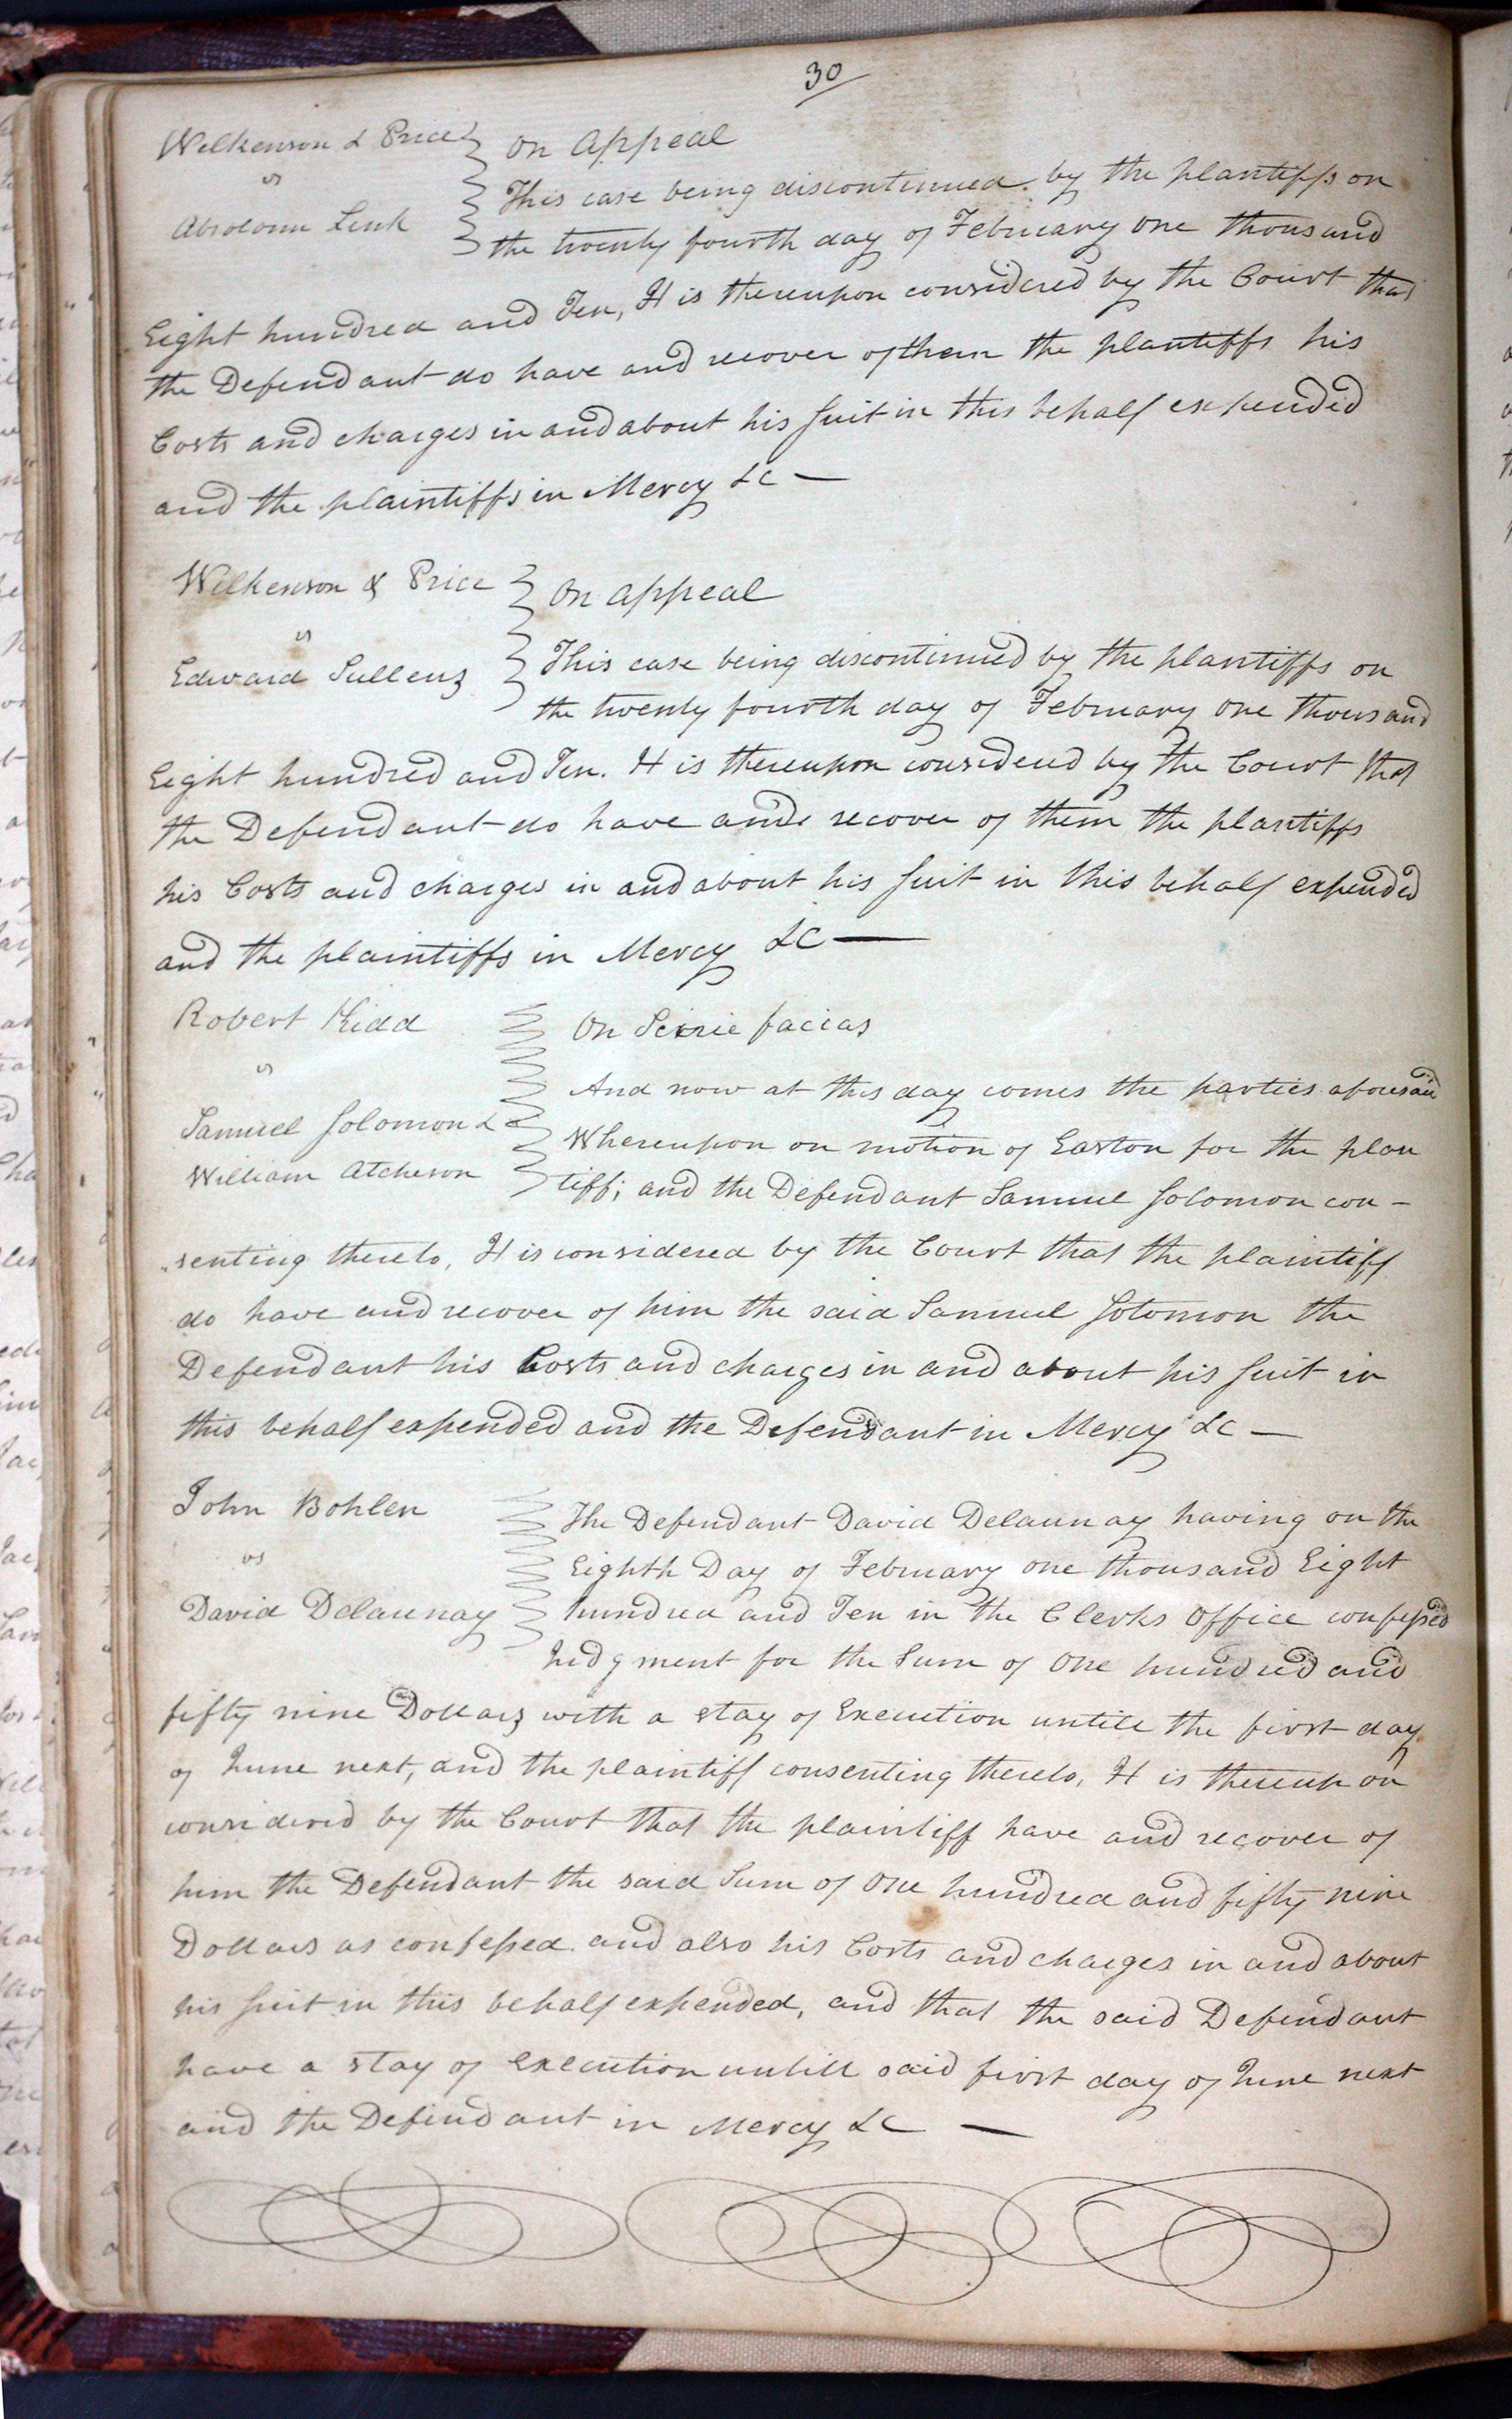 30
Wilkenson & Price
vs
Absolom Link
On Appeal
This case being discontinued by the plantiffs on
the twenty fourth day of February one thousand
Eight hundred and Ten, It is thereupon considered by the Court that
the Defendant do have and recover of them the plantiffs his
Costs and charges in and about his suit in this behalf expended
and the plaintiffs in Mercy &c —
Wilkenson & Price
vs
Edward Sullens
On appeal
This case being discontinued by the plantiffs on
the twenty fourth day of February one thousand
Eight hundred and Ten. It is thereupon considered by the Court that
the Defendant do have and recover of them the plantiffs
his Costs and charges in and about his suit in this behalf expended
and the plaintiffs in Mercy &c —
Robert Kidd
vs
Samuel Solomon &
William Atcheson
On Scirie facias
And now at this day comes the parties aforesaid
Whereupon on motion of Easton for the plan
tiff; and the Defendant Samuel Solomon con-
senting thereto, It is considered by the Court that the plaintiff
do have and recover of him the said Samuel Solomon the
Defendant his Costs and charges in and about his suit in
this behalf expended and the Defendant in Mercy &c —
John Bohlen
vs
David Delaunay
The Defendant David Delaunay having on the
Eighth Day of February one thousand Eight
hundred and Ten in the Clerks Office confessed
Judgment for the Sum of One hundred and
fifty nine Dollars with a stay of Execution untill the first day
of June next, and the plaintiff consenting thereto, It is thereupon
considered by the Court that the plaintiff have and recover of
him the Defendant the said Sum of One hundred and fifty nine
Dollars as confessed and also his Costs and charges in and about
his suit in this behalf expended, and that the said Defendant
have a stay of execution untill said first day of June next
and the Defendant in Mercy &c —